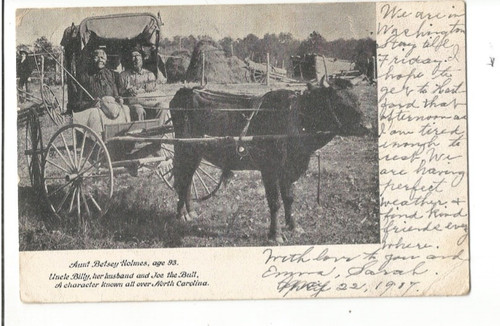 We are in
Washington
stay till
Friday. I
hope to
get to Hart-
ford that
afternoon as
am tired
enough to
rest. We
are having
perfect
weather &
find kind
friends every
where.
With love to you and
Emma, Sarah.
22, 19
Aunt Betsey Holmes, age 93.
Uncle Billy, her husband and Joe the Bull,
A character known all over North Carolina.